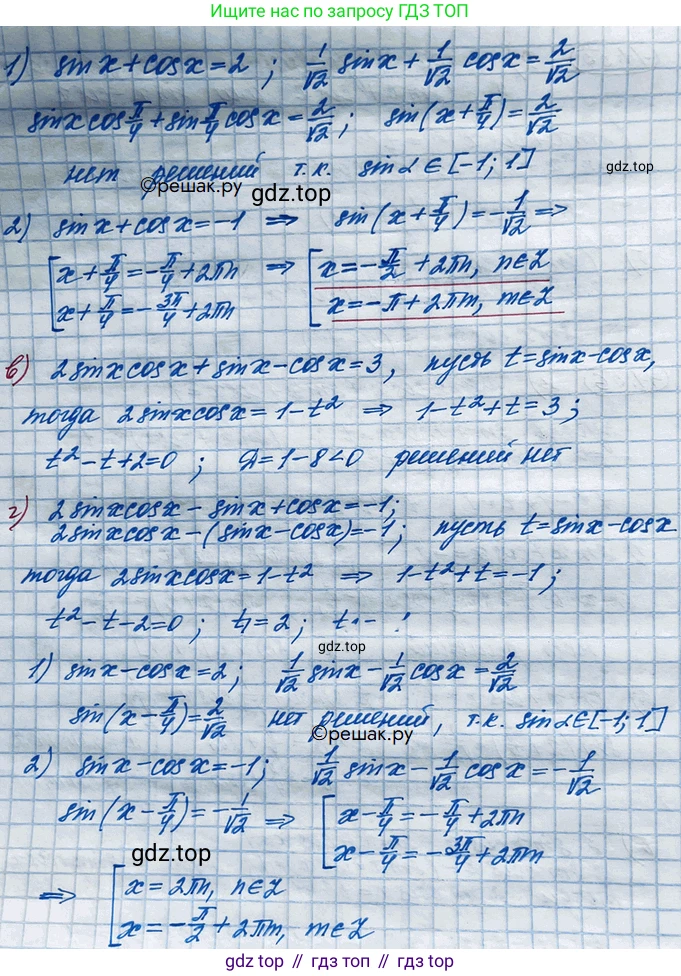 Ищите нас в браузере по запросу ГДЗ ТОП
1) sin x + cos x = 2 ; 1/√2 sin x + 1/√2 cos x = 2/√2
sin x cos π/4 + sin π/4 cos x = 2/√2 ; sin(x + π/4) = 2/√2
нет решений т.к. sin α ∈ [-1; 1]
©решак.ру gdz.top gdz.top
2) sin x + cos x = -1 ⇒ sin(x + π/4) = -1/√2 ⇒
[ x + π/4 = -π/4 + 2πn ⇒ [ x = -π/2 + 2πn, n∈Z
x + π/4 = -3π/4 + 2πn x = -π + 2πm, m∈Z
в) 2 sin x cos x + sin x - cos x = 3, пусть t = sin x - cos x,
тогда 2 sin x cos x = 1 - t² ⇒ 1 - t² + t = 3 ;
t² - t + 2 = 0 ; Д = 1 - 8 < 0 решений нет
г) 2 sin x cos x - sin x + cos x = -1 ;
2 sin x cos x - (sin x - cos x) = -1 ; пусть t = sin x - cos x
тогда 2 sin x cos x = 1 - t² ⇒ 1 - t² + t = -1 ;
t² - t - 2 = 0 ; t₁ = 2 ;
gdz.top
1) sin x - cos x = 2 ; 1/√2 sin x - 1/√2 cos x = 2/√2
sin(x - π/4) = 2/√2 нет решений, т.к. sin α ∈ [-1; 1]
©решак.ру
2) sin x - cos x = -1 ; 1/√2 sin x - 1/√2 cos x = -1/√2
sin(x - π/4) = -1/√2 ⇒ [ x - π/4 = -π/4 + 2πn
x - π/4 = -3π/4 + 2πm
gdz.top
⇒ [ x = 2πn, n∈Z
x = -π/2 + 2πm, m∈Z
gdz.top // гдз.топ // гдз топ